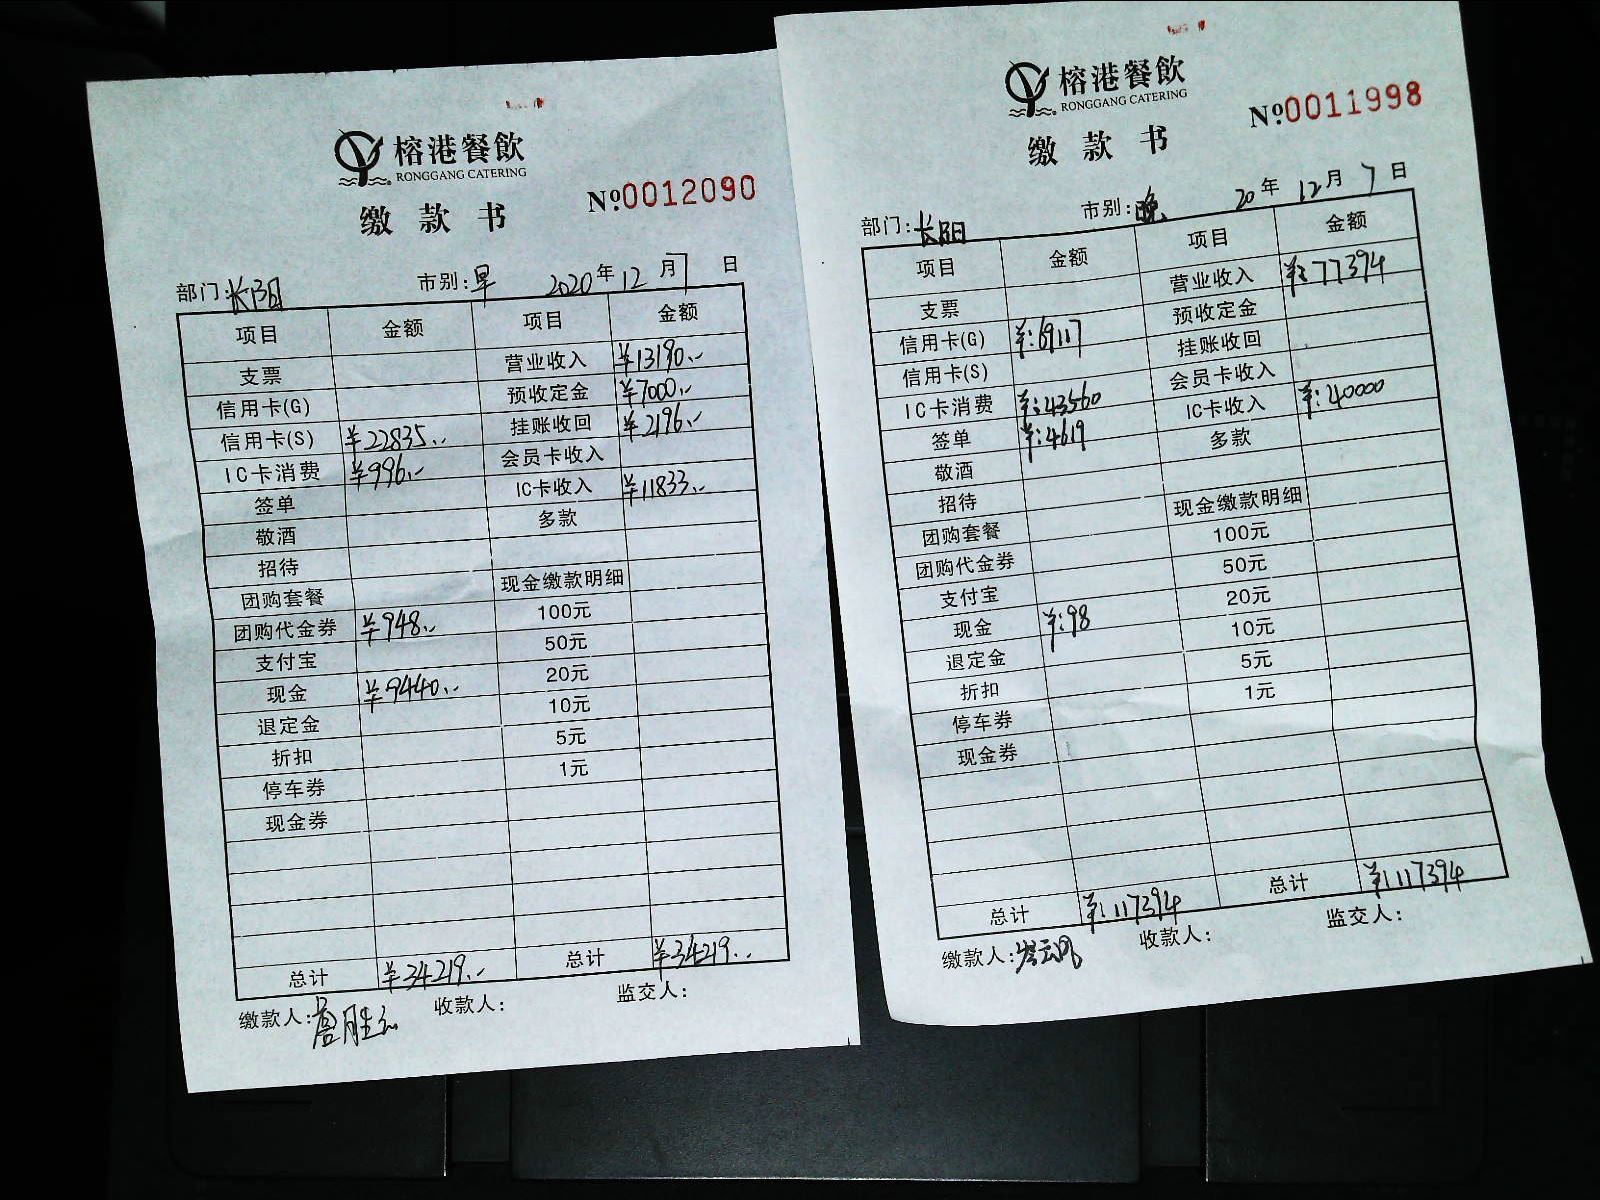 榕港餐飲
RONGGANG CATERING
缴款书
№0012090
部门:长阳 市别:早 2020年12月7日
项目 金额 项目 金额
支票 营业收入 ¥13190.-
信用卡(G) 预收定金 ¥7000.-
信用卡(S) ¥22835.- 挂账收回 ¥2196.-
IC卡消费 ¥996.- 会员卡收入
签单 IC卡收入 ¥11833.-
敬酒 多款
招待
团购套餐 现金缴款明细
团购代金券 ¥948.- 100元
支付宝 50元
现金 ¥9440.- 20元
退定金 10元
折扣 5元
停车券 1元
现金券
总计 ¥34219.- 总计 ¥34219.-
缴款人: 收款人: 监交人:
榕港餐飲
RONGGANG CATERING
缴款书
№0011998
部门:长阳 市别:晚 20年12月7日
项目 金额 项目 金额
支票 营业收入 ¥:77394
信用卡(G) ¥:69117 预收定金
信用卡(S) 挂账收回
IC卡消费 ¥:43560 会员卡收入
签单 ¥:4619 IC卡收入 ¥:40000
敬酒 多款
招待
团购套餐 现金缴款明细
团购代金券 100元
支付宝 50元
现金 ¥:98 20元
退定金 10元
折扣 5元
停车券 1元
现金券
总计 ¥:117394 总计 ¥:117394
缴款人: 收款人: 监交人: